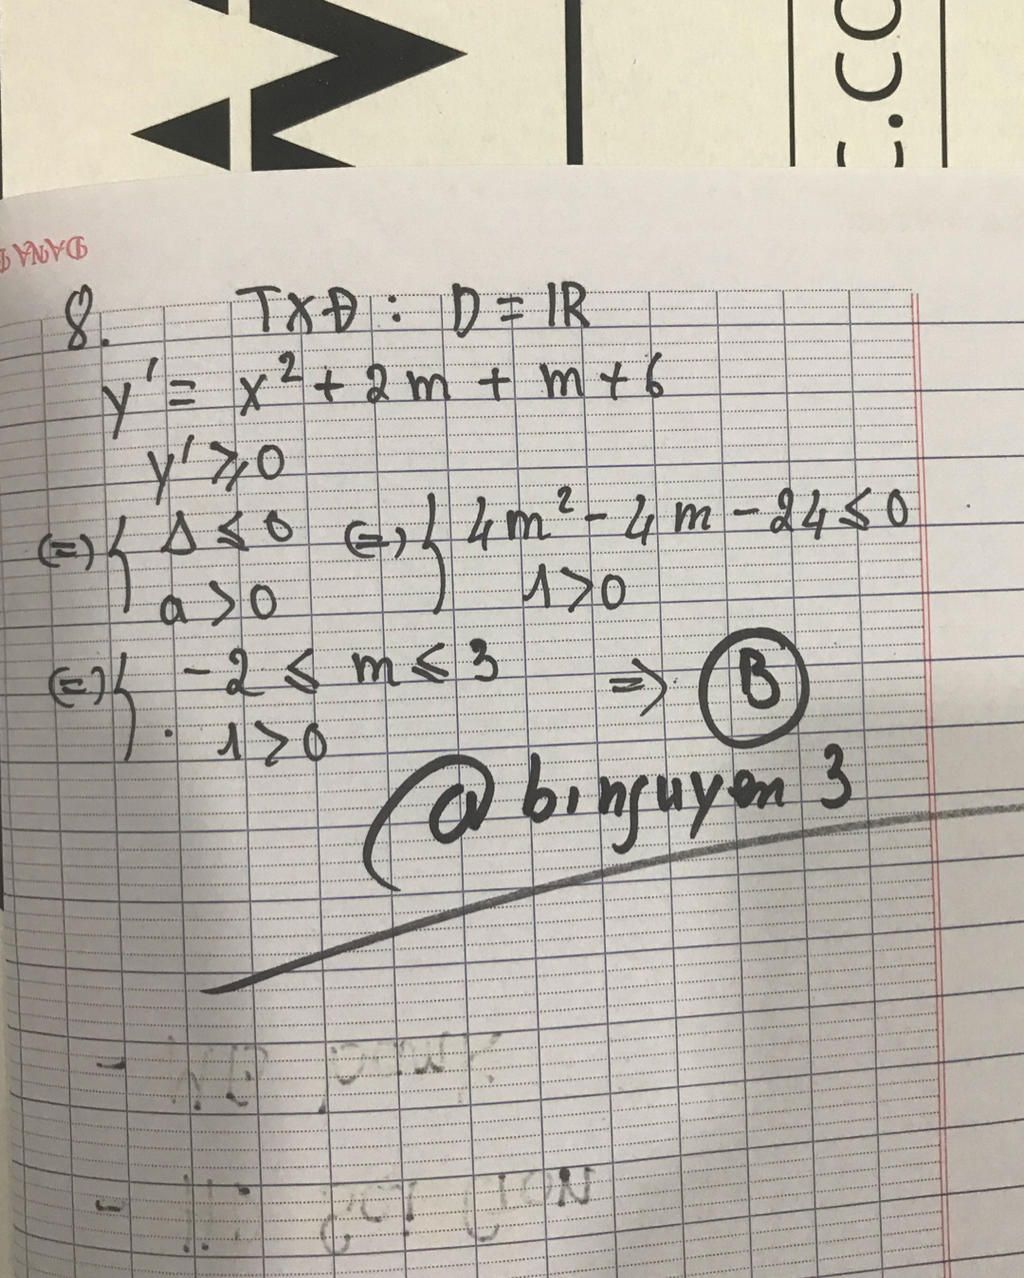 C.CO
DANA
8. TXĐ : D = IR
y' = x² + 2m + m + 6
y' ⩾ 0
(=) { Δ ⩽ 0 (=) { 4m² - 4m - 24 ⩽ 0
a > 0 1 > 0
(=) { -2 ⩽ m ⩽ 3 => B
1 > 0
@binguyen3